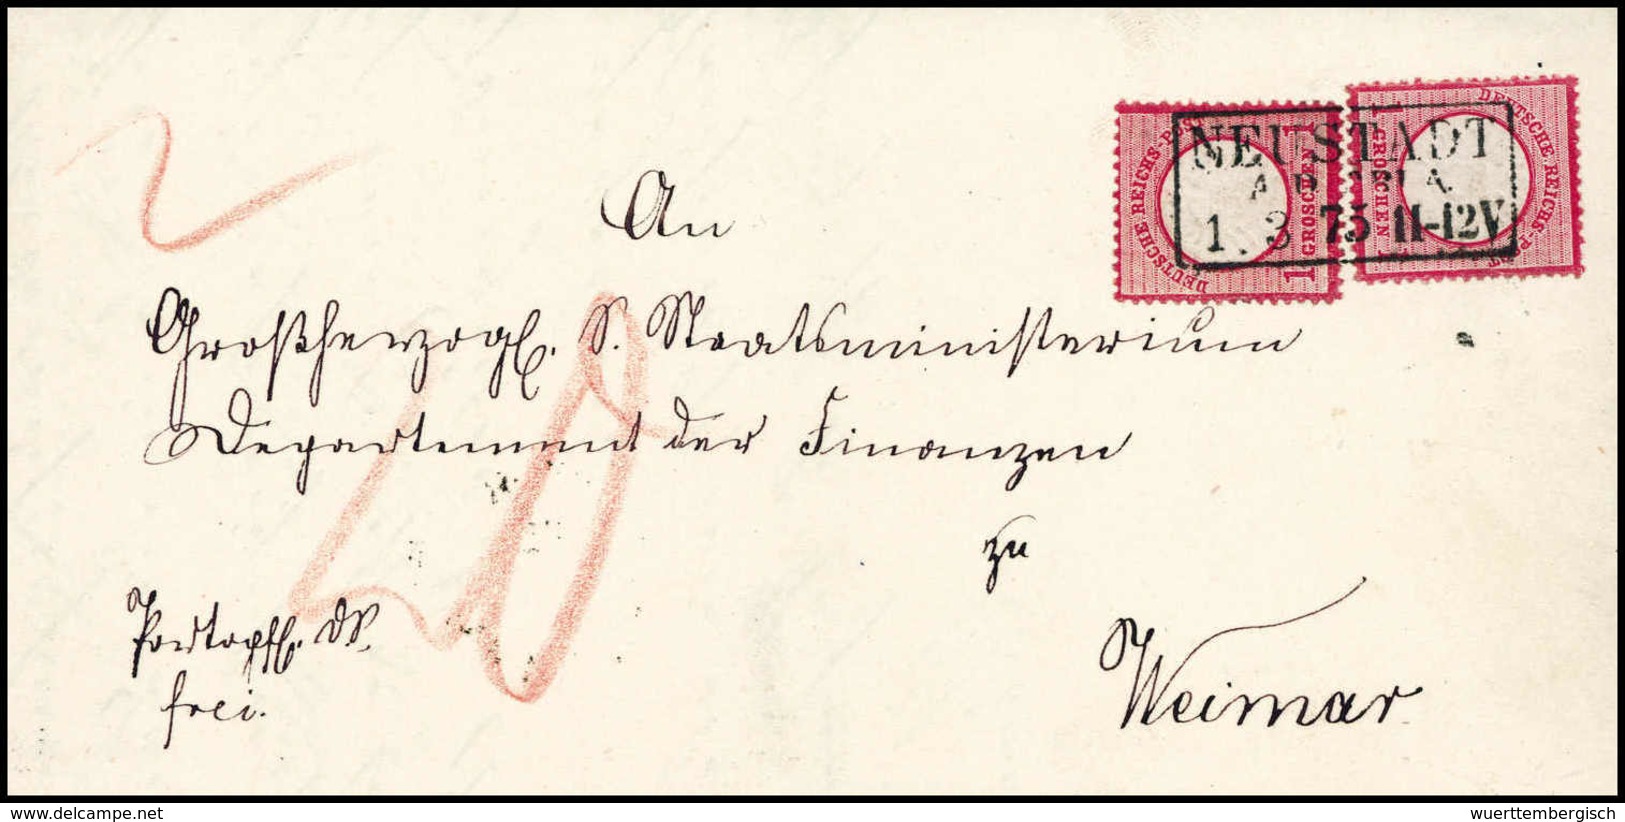 NEUSTADT
A.D. ORLA
1. 3 75 11-12V
DEUTSCHE REICHS-POST
1 GROSCHEN 1
DEUTSCHE REICHS-POST
1 GROSCHEN 1
2
An
Großherzogl. S. Staatsministerium
Departement der Finanzen
zu
Weimar
20
Portopfl. DS.
frei.
wuerttembergisch